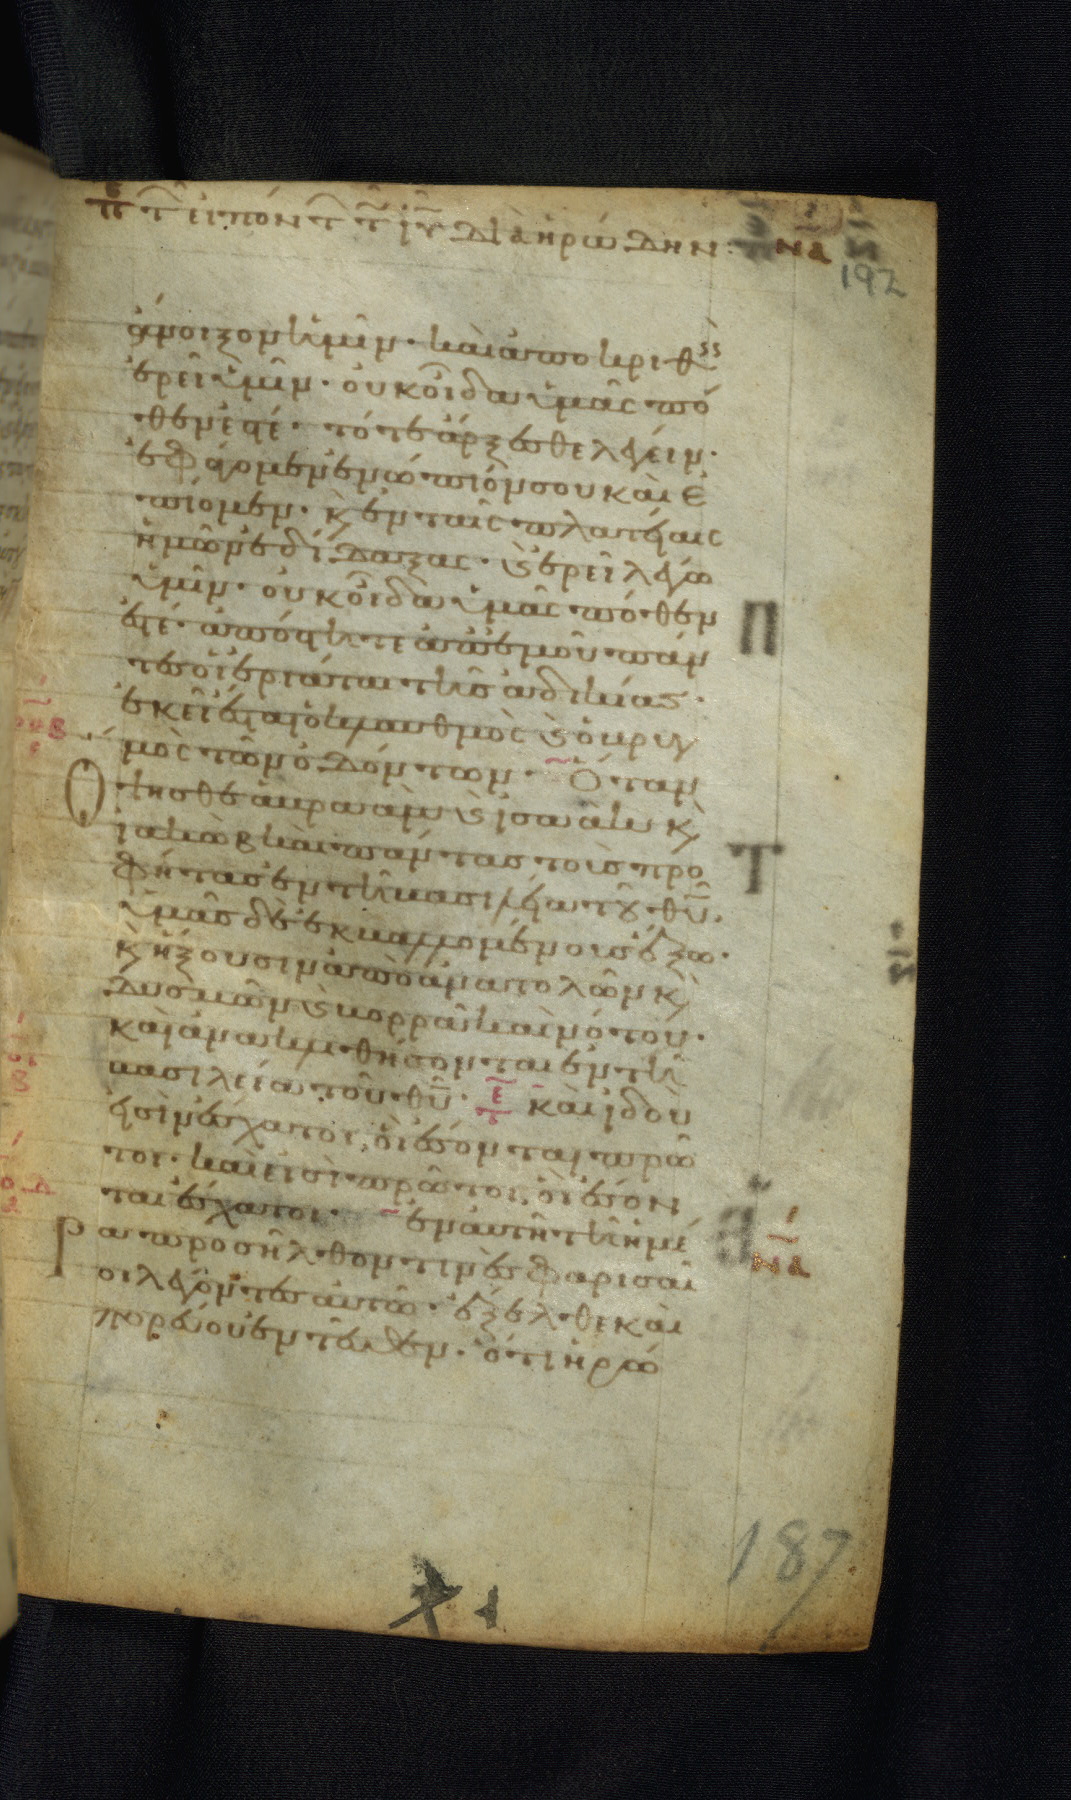 πε τ̑ ειπόντ τ̑ ιυ διὰ ἡρώδην: να
192
ἄνοιξον ἡμῖν· καὶ ἀποκριθεὶς
ἐρεῖ ὑμῖν· οὐκ οἶδα ὑμᾶς πό
θεν ἐστέ· τότε ἄρξεσθε λέγειν·
ἐφάγομεν ἐνώπιόν σου καὶ ἐ
πίομεν· κ̀ ἐν ταῖς πλατείαις
ἡμῶν ἐδίδαξας· κ̀ ἐρεῖ λέγω
ὑμῖν· οὐκ οἶδα ὑμᾶς πόθεν
ἐστέ· ἀπόστητε ἀπ' ἐμοῦ πάν
τες οἱ ἐργάται τῆς ἀδικίας·
ἐκεῖ ἔσται ὁ κλαυθμὸς κ̀ ὁ βρυγ
μὸς τῶν ὀδόντων· Ὅταν
Ὄψησθε ἀβραὰμ κ̀ ἰσαὰκ κ̀
ἰακὼβ καὶ πάντας τοὺς προ
φήτας ἐν τῆ βασιλεία τοῦ θῦ·
ὑμᾶς δὲ ἐκβαλλομένους ἔξω·
κ̀ ἥξουσιν ἀπὸ ἀνατολῶν κ̀
δυσμῶν κ̀ βορρᾶ καὶ νότου·
καὶ ἀνακλιθήσονται ἐν τῆ
βασιλεία τοῦ θῦ· τε καὶ ἰδοὺ
εἰσὶν ἔσχατοι, οἳ ἔσονται πρῶ
τοι· καὶ εἰσὶ πρῶτοι, οἳ ἔσον
ται ἔσχατοι· ἐν αὐτῆ τῆ ἡμέ
ρα προσῆλθόν τινες φαρισαῖ
οι λέγοντες αὐτῶ· ἔξελθε καὶ
πορεύου ἐντεῦθεν· ὅτι ἡρώ
να
187